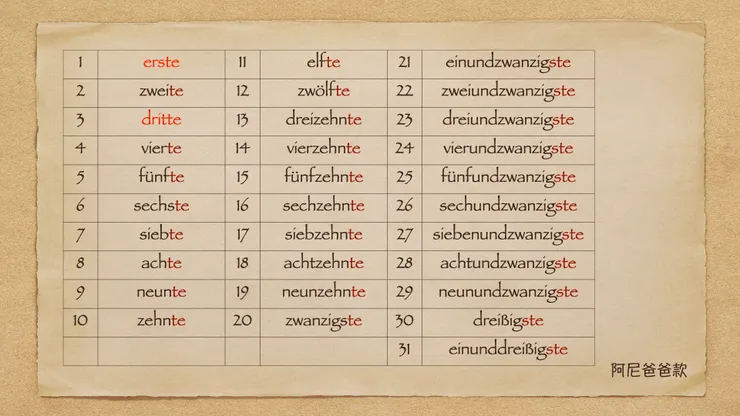 1 erste 11 elfte 21 einundzwanzigste
2 zweite 12 zwölfte 22 zweiundzwanzigste
3 dritte 13 dreizehnte 23 dreiundzwanzigste
4 vierte 14 vierzehnte 24 vierundzwanzigste
5 fünfte 15 fünfzehnte 25 fünfundzwanzigste
6 sechste 16 sechzehnte 26 sechundzwanzigste
7 siebte 17 siebzehnte 27 siebenundzwanzigste
8 achte 18 achtzehnte 28 achtundzwanzigste
9 neunte 19 neunzehnte 29 neunundzwanzigste
10 zehnte 20 zwanzigste 30 dreißigste
31 einunddreißigste
阿尼爸爸款